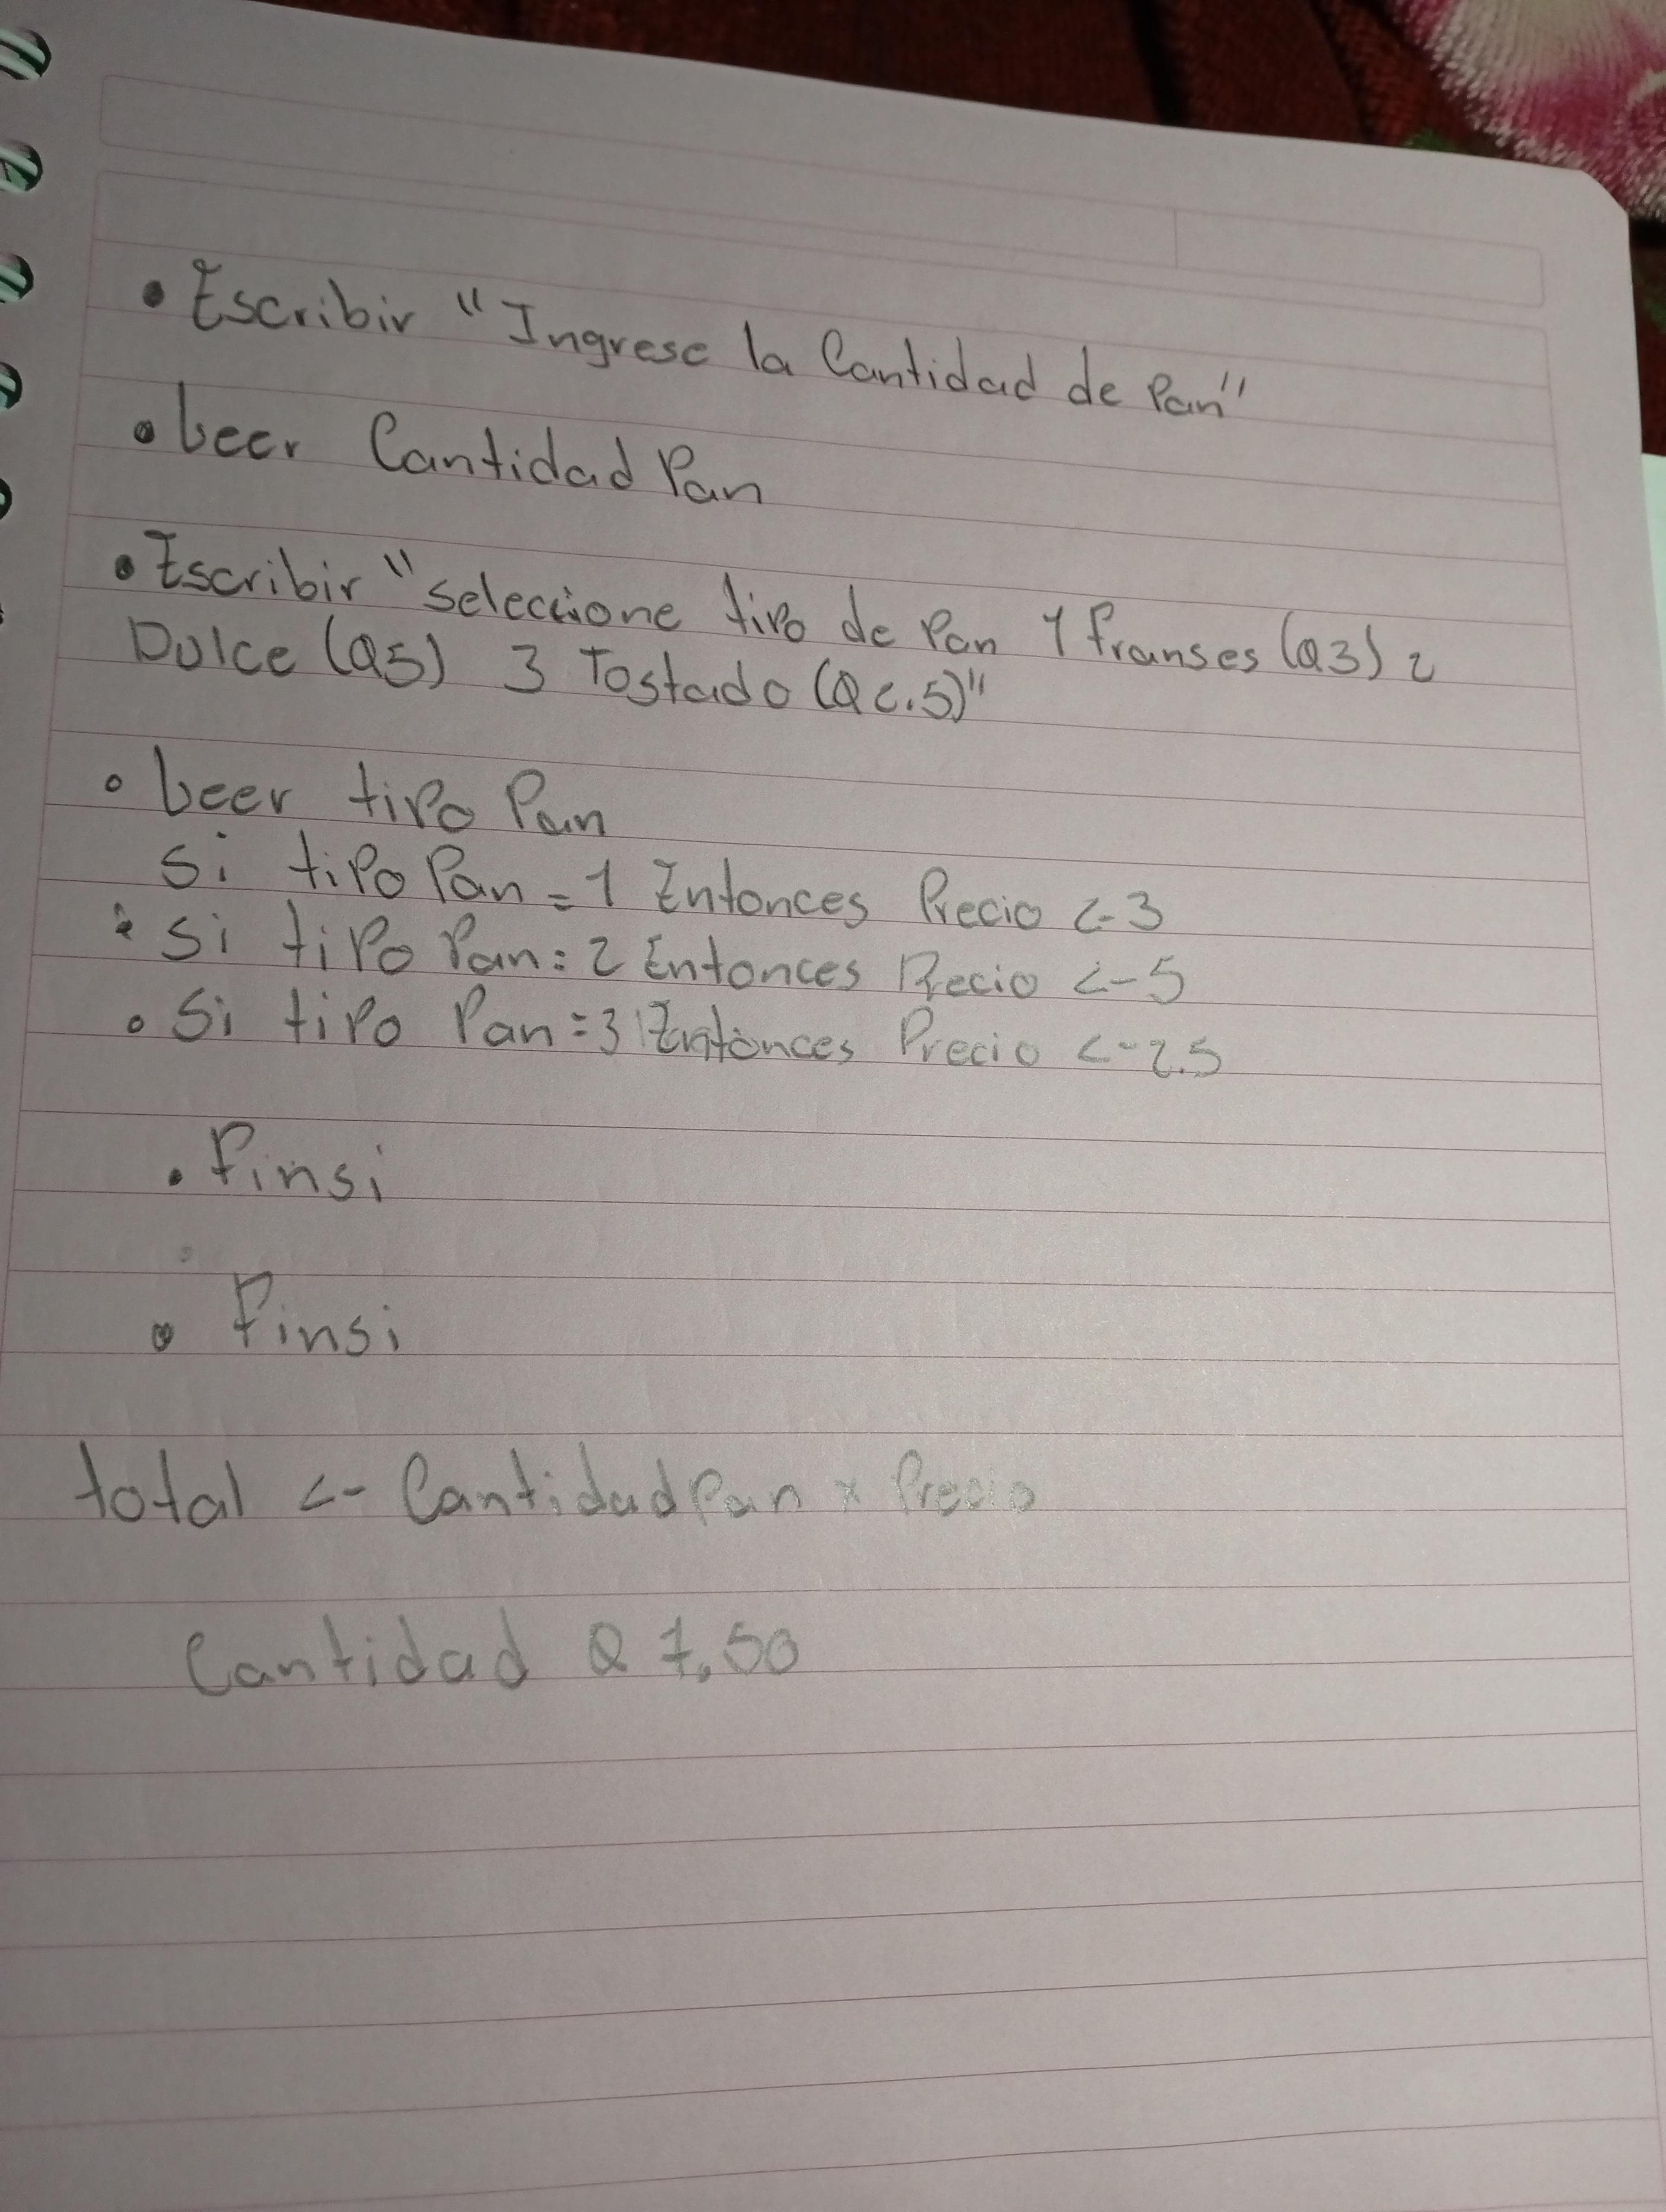 • Escribir "Ingrese la Cantidad de Pan"
• Leer Cantidad Pan
• Escribir "seleccione tipo de Pan 1 franses (Q3) 2
Dulce (Q5) 3 Tostado (Q2.5)"
• Leer tipo Pan
Si tipo Pan = 1 Entonces Precio <- 3
• Si tipo Pan = 2 Entonces Precio <- 5
• Si tipo Pan = 3 Entonces Precio <- 2.5
• Finsi
• Finsi
total <- CantidadPan x Precio
Cantidad Q 7.50